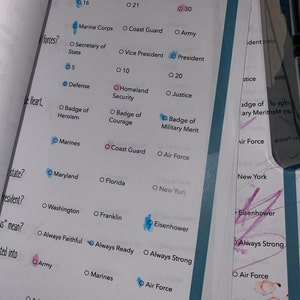 16 21 30
Marine Corps Coast Guard Army
forces?
Secretary of State Vice President President
5 10 20
Defense Homeland Security Justice
Heart.
Badge of Heroism Badge of Courage Badge of Military Merit
Marines Coast Guard Air Force
state?
Maryland Florida New York
resident?
Washington Franklin Eisenhower
us" mean?
Always Faithful Always Ready Always Strong
ted into
Army Marines Air Force
Justice
Air Force
New York
Eisenhower
Always Strong
Air Force